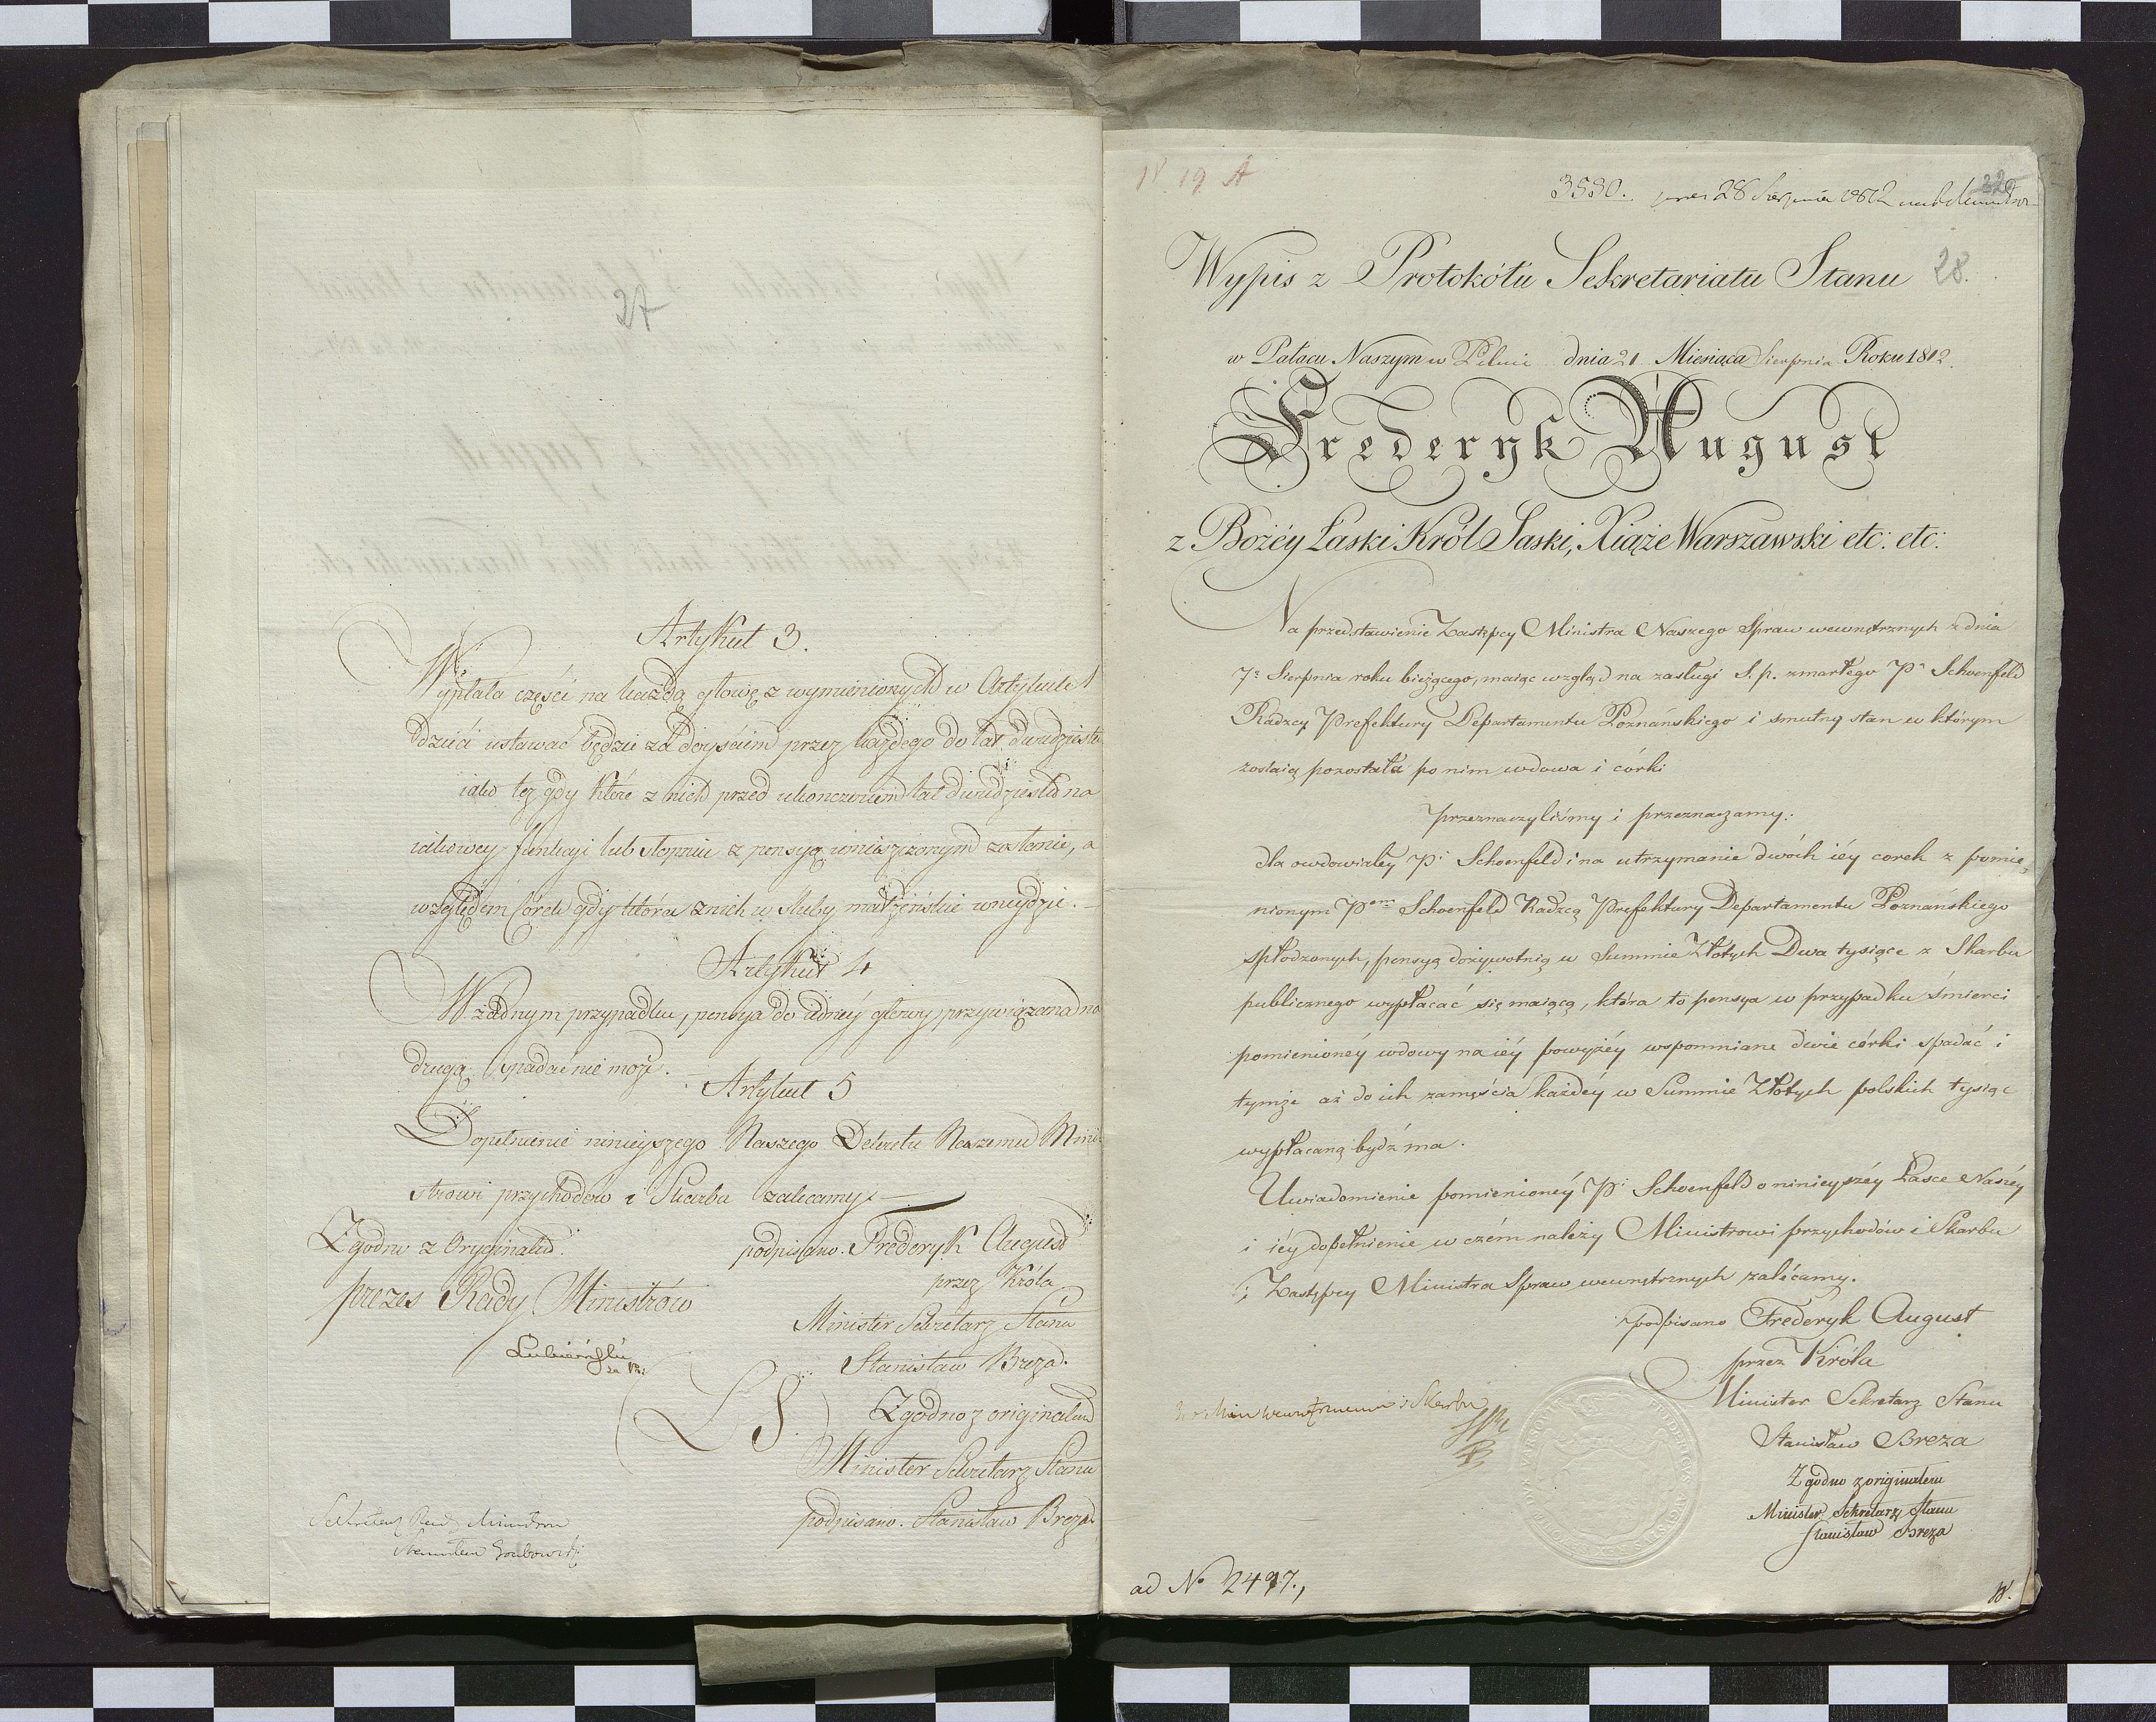 27
Artykuł 3.
Wypłata części na każdą głowę z wymienionych w Artykule 1
dzieci ustawać będzie za doyściem przez każdego do lat dwudziestu
iako też gdy które z nich przed ukończeniem lat dwudziestu na
iakowey funkcyi lub stopniu z pensyą umieszczonym zostanie, a
względem Córek gdy która z nich w śluby małżeńskie wniydzie.
Artykuł 4
W żadnym przypadku, pensya do iedney głowy przywiązana na
drugą spadać nie może.
Artykuł 5
Dopełnienie ninieyszego Naszego Dekretu Naszemu Mini-
strowi przychodów i Skarbu zalecamy.
Zgodno z Oryginałem
prezes Rady Ministrów
podpisano. Frederyk August
przez Króla
Minister Sekretarz Stanu
Stanisław Breza.
(L S)
Zgodno z originałem
Minister Sekretarz Stanu
podpisano. Stanisław Breza
Sekretarz Rady Ministrów
N. 19 A
3530. 28 Sierpnia 1812
28.
Wypis z Protokółu Sekretariatu Stanu
w Pałacu Naszym w Pilnic dnia 21 Miesiąca Sierpnia Roku 1812.
Frederyk August
z Bożéy Łaski Król Saski, Xiąże Warszawski etc: etc:
Na przedstawienie Zastępcy Ministra Naszego Spraw wewnętrznych z dnia
7o Sierpnia roku bieżącego, maiąc wzgląd na zasługi S. p. zmarłego Pa Schoenfeld
Radzcy Prefektury Departamentu Poznańskiego i smutny stan w którym
zostaią pozostała po nim wdowa i córki
Przeznaczyliśmy i przeznaczamy:
dla owdowiałey Pi Schoenfeld i na utrzymanie dwóch iéy corek z pomie-
nionym Pem Schoenfeld Radzcą Prefektury Departamentu Poznańskiego
spłodzonych, pensyą dożywotnią w Summie Złotych Dwa tysiące z Skarbu
publicznego wypłacać się maiącą, która to pensya w przypadku śmierci
pomienionéy wdowy na iéy powyżéy wspomniane dwie córki spadać i
tymże aż do ich zamęścia każdéy w Summie Złotych polskich tysiąc
wypłacaną bydź ma.
Uwiadomienie pomienionéy Pi Schoenfeld o ninieyszéy Łasce Naszéy
i iéy dopełnienie w czém należy Ministrowi przychodów i Skarbu
i Zastępcy Ministra Spraw wewnętrznych zalécamy.
podpisano Frederyk August
przez Króla
Minister Sekretarz Stanu
Stanisław Breza
Zgodno z originałem
Minister Sekretarz Stanu
Stanisław Breza
ad No 2497.,